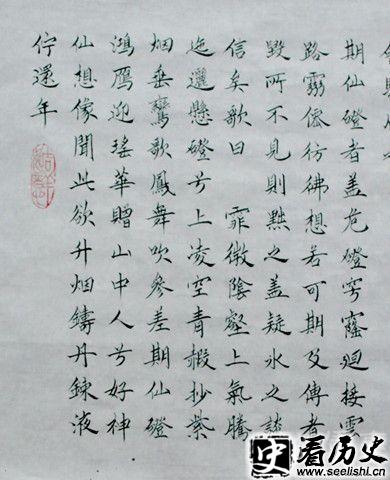 期仙磴者盖危磴穹窿廻接雲
路靈僊彷彿想若可期及傳者
毀所不見則黜之盖疑氷之談
信矣歌曰 霏微陰壑上氣騰
迤邐懸磴兮上凌空青赮抄紫
烟垂鸞歌鳳舞吹參差期仙磴
鴻鴈迎瑤華贈山中人兮好神
仙想像聞此欲升烟鑄丹鍊液
佇還年
史 看历史
www.seelishi.cn